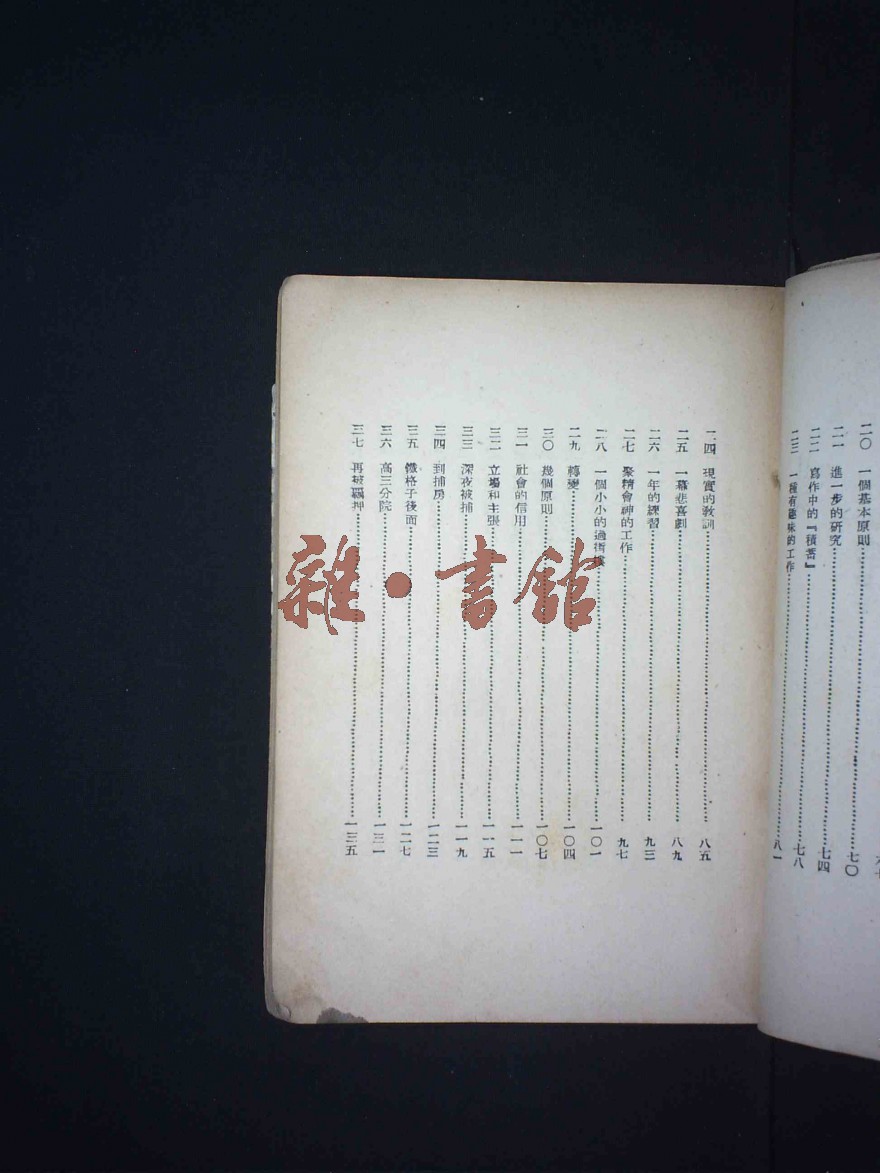 二〇 一個基本原則……七〇
二一 進一步的研究……七四
二二 寫作中的『積蓄』……七八
二三 一種有趣味的工作……八一
二四 現實的教訓……八五
二五 一幕悲喜劇……八九
二六 一年的練習……九三
二七 聚精會神的工作……九七
二八 一個小小的過街樓……一〇一
二九 轉變……一〇四
三〇 幾個原則……一〇七
三一 社會的信用……一一一
三二 立場和主張……一一五
三三 深夜被捕……一一九
三四 到捕房……一二三
三五 鐵格子後面……一二七
三六 高三分院……一三一
三七 再被羈押……一三五
雜·書館